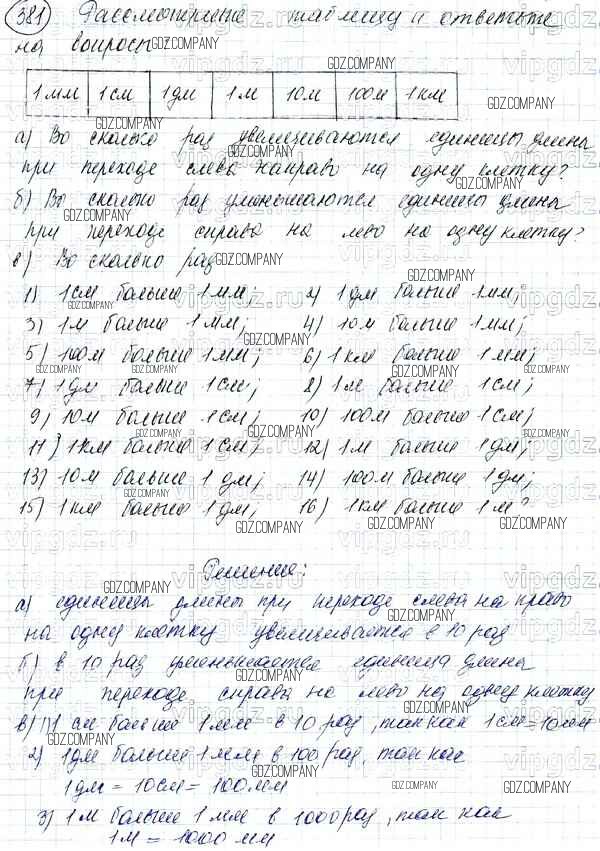 381 Рассмотрите таблицу и ответьте
на вопросы:
1 мм 1 см 1 дм 1 м 10 м 100 м 1 км
а) Во сколько раз увеличиваются единицы длины
при переходе слева направо на одну клетку?
б) Во сколько раз уменьшаются единицы длины
при переходе справа на лево на одну клетку?
в) Во сколько раз
1) 1 см больше 1 мм; 2) 1 дм больше 1 мм;
3) 1 м больше 1 мм; 4) 10 м больше 1 мм;
5) 100 м больше 1 мм; 6) 1 км больше 1 мм;
7) 1 дм больше 1 см; 8) 1 м больше 1 см;
9) 10 м больше 1 см; 10) 100 м больше 1 см;
11) 1 км больше 1 см; 12) 1 м больше 1 дм;
13) 10 м больше 1 дм; 14) 100 м больше 1 дм;
15) 1 км больше 1 дм; 16) 1 км больше 1 м?
Решение:
а) единицы длины при переходе слева на право
на одну клетку увеличивается в 10 раз
б) в 10 раз уменьшается единица длины
при переходе справа на лево на одну клетку
в) 1) 1 см больше 1 мм в 10 раз, так как 1 см = 10 мм
2) 1 дм больше 1 мм в 100 раз, так как
1 дм = 10 см = 100 мм
3) 1 м больше 1 мм в 1000 раз, так как
1 м = 1000 мм